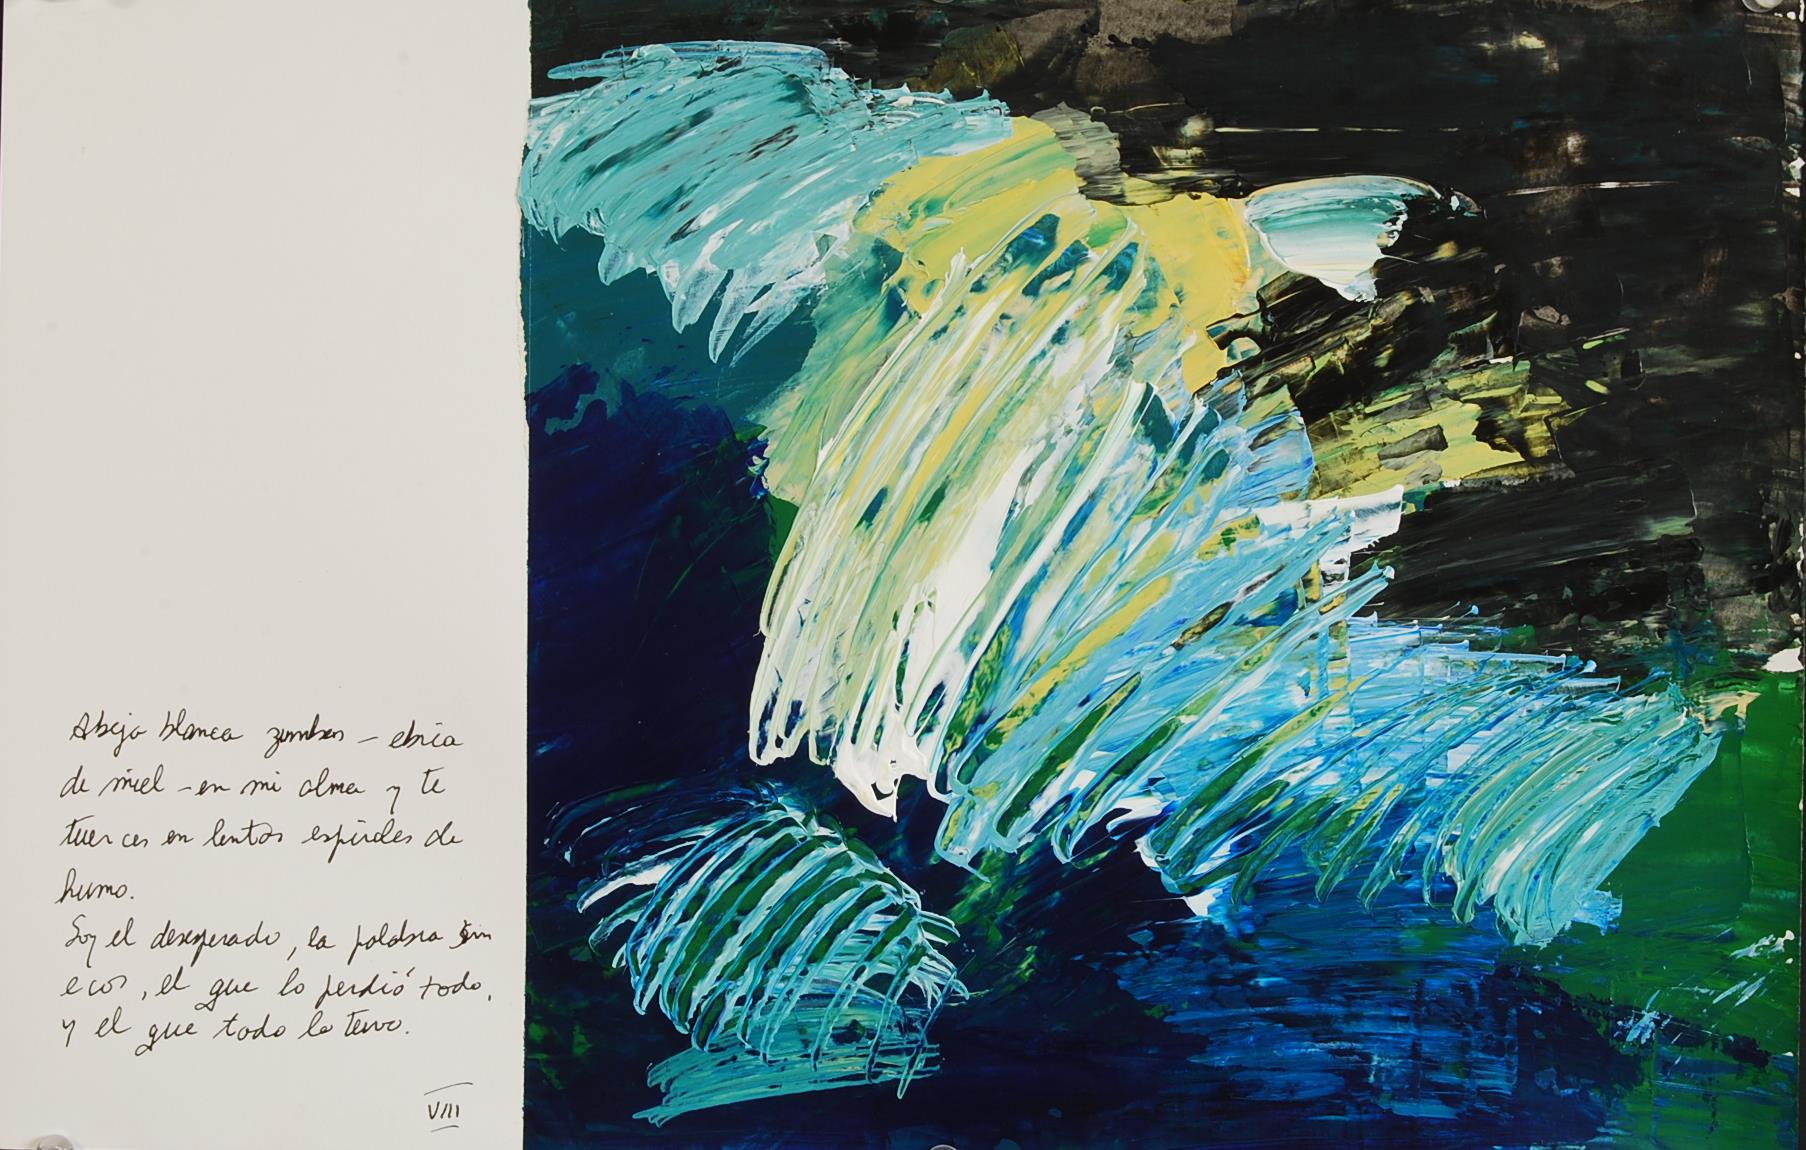 Abeja blanca zumbas – ebria
de miel – en mi alma y te
tuerces en lentas espirales de
humo.
Soy el desesperado, la palabra sin
ecos, el que lo perdió todo,
y el que todo lo tuvo.
VIII